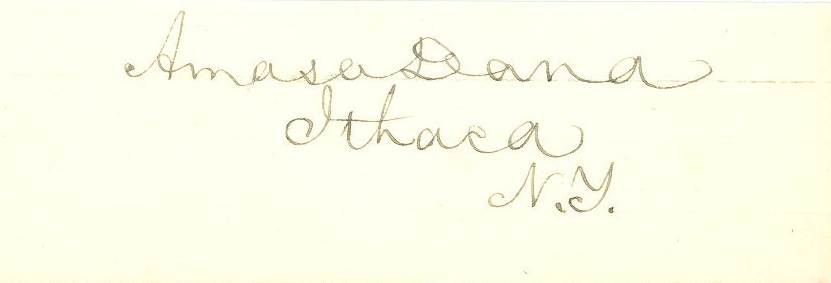 Amasa Dana
Ithaca
N.Y.